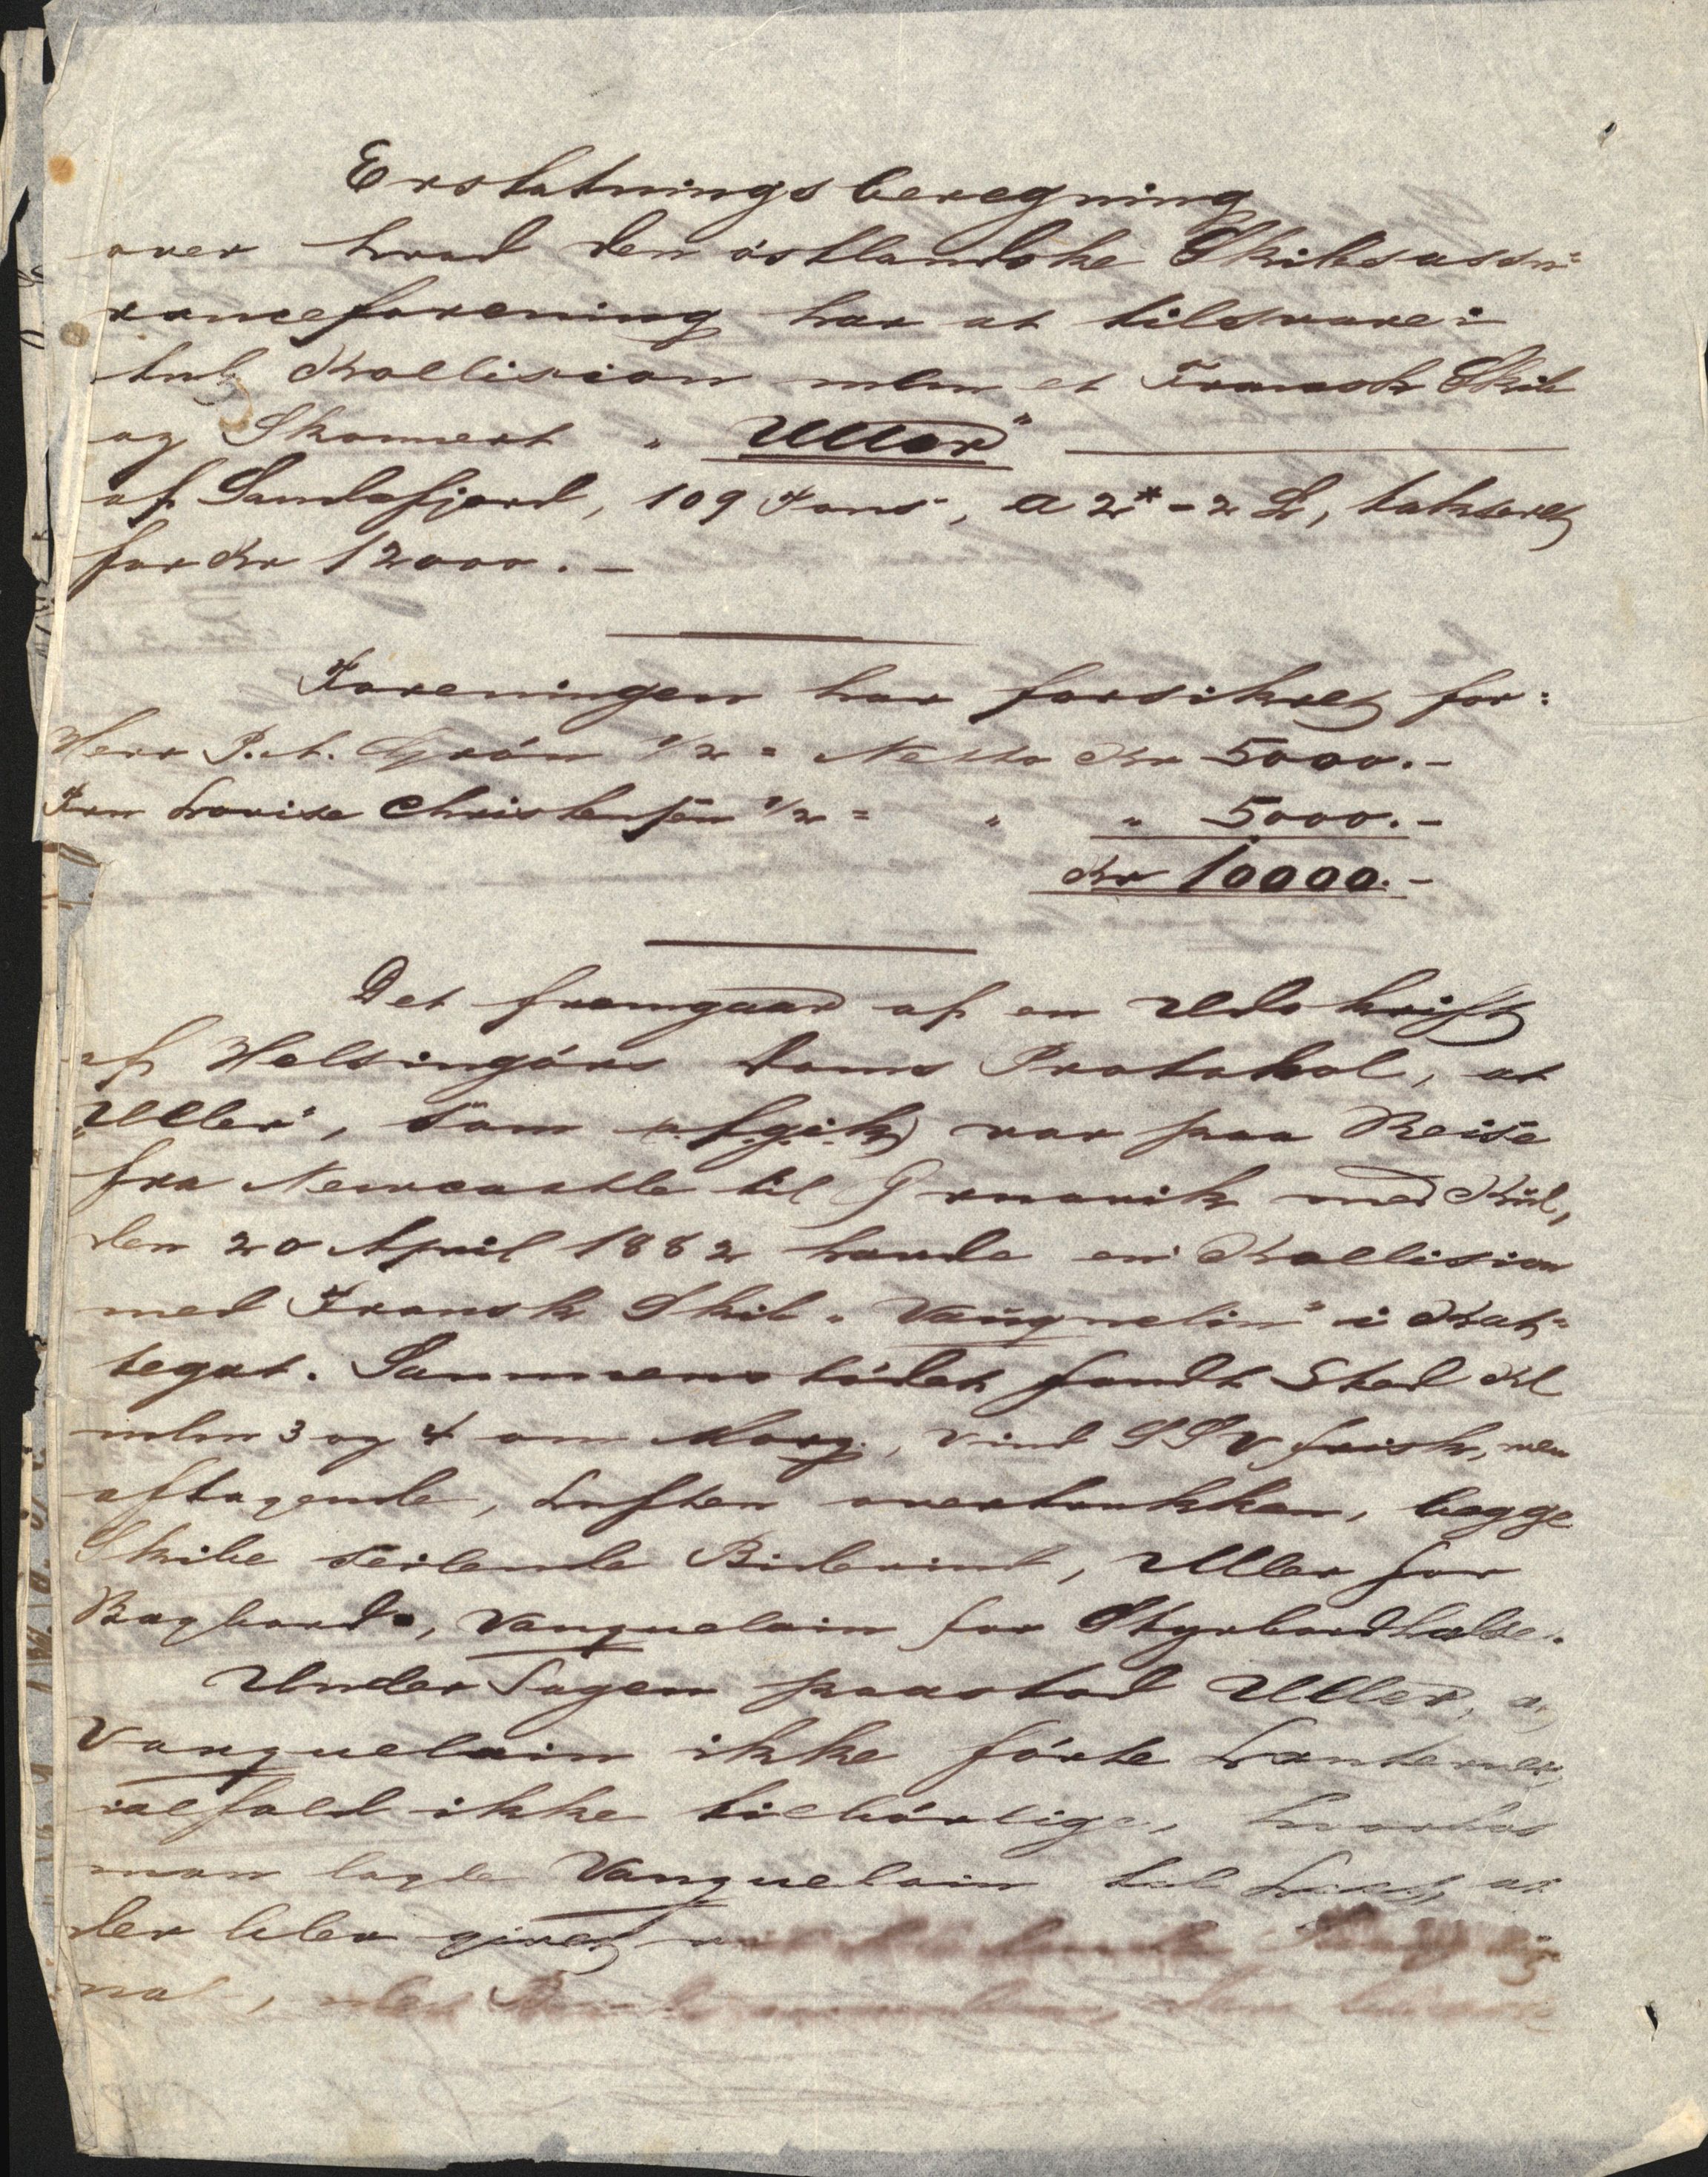 Erstatningsberegning
over hvad den østlandske Skibsassu=
ranceforening har at tilsvare i
Anl Kollision mlm et Fransk Skib
og Skonnert „Uller"
af Sandefjord, 109 Tons, A 2*-2 L, takseret
for Kr 12000.-
Foreningen har forsikret for:
Herr P. A. Grøn 1/2 = Netto Kr 5000.-
Fru Lovise Christensen 1/2 = " " 5000.-
Kr 10000.-
Det fremgaar af en Udskrift
af Helsingørs Doms Protokol, at
„Uller", som afgik var paa Reise
fra Newcastle til med Kul,
den 20 April 1882 havde en Kollision
med Fransk Skib „Vauquelin" i Kat=
tegat. Sammenstødet fandt Sted Kl
mlm 3 og 4 om Morg., Vind SSV frisk, men
aftagende, Luften overtrukken, begge
Skibe seilende Bidevind, Uller for
Bagbords, Vauquelain for Styrbordhalse.
Under Sagen paastod Uller, at
Vauquelain ikke førte Lanterner,
ialfald ikke tilbørlige, hvorhos
man lagde Vauquelain til Last, at
der blev givet